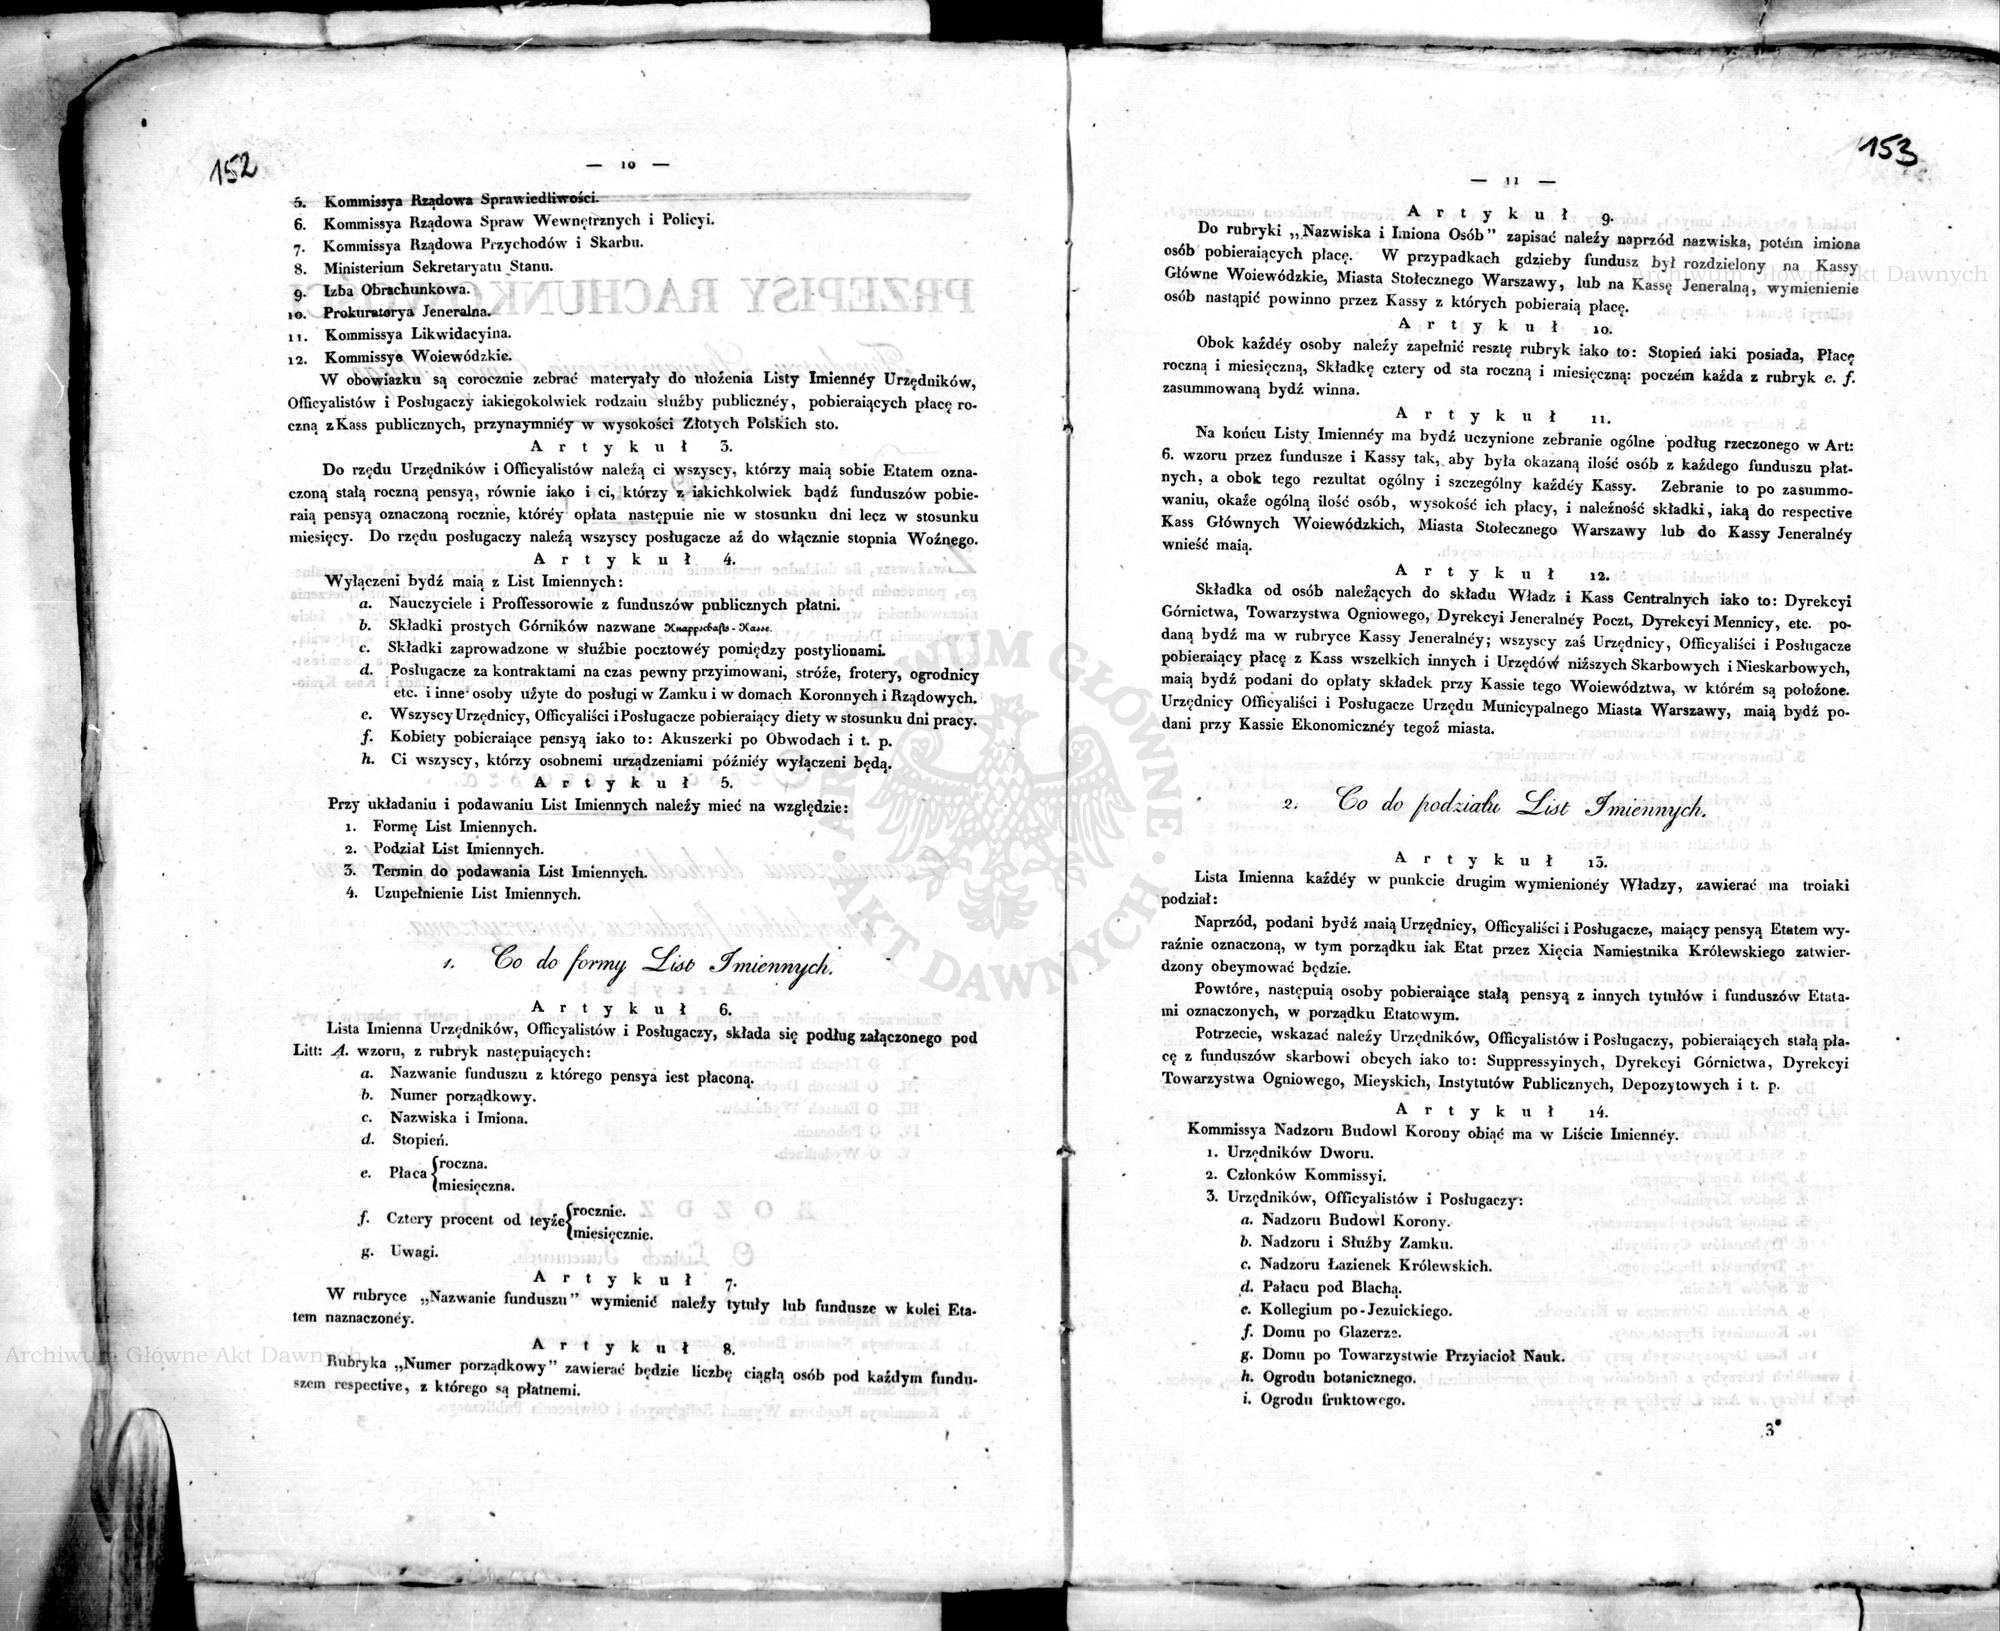 152
— 10 —
5. Kommissya Rządowa Sprawiedliwości.
6. Kommissya Rządowa Spraw Wewnętrznych i Policyi.
7. Kommissya Rządowa Przychodów i Skarbu.
8. Ministerium Sekretaryatu Stanu.
9. Izba Obrachunkowa.
10. Prokuratorya Jeneralna.
11. Kommissya Likwidacyina.
12. Kommissye Woiewódzkie.
W obowiązku są corocznie zebrać materyały do ułożenia Listy Imiennéy Urzędników,
Officyalistów i Posługaczy iakiegokolwiek rodzaiu służby publicznéy, pobieraiących płacę ro-
czną z Kass publicznych, przynaymniéy w wysokości Złotych Polskich sto.
Artykuł 3.
Do rzędu Urzędników i Officyalistów należą ci wszyscy, którzy maią sobie Etatem ozna-
czoną stałą roczną pensyą, równie iako i ci, którzy z iakichkolwiek bądź funduszów pobie-
raią pensyą oznaczoną rocznie, któréy opłata następuie nie w stosunku dni lecz w stosunku
miesięcy. Do rzędu posługaczy należą wszyscy posługacze aż do włącznie stopnia Woźnego.
Artykuł 4.
Wyłączeni bydź maią z List Imiennych:
a. Nauczyciele i Proffessorowie z funduszów publicznych płatni.
b. Składki prostych Górników nazwane Knappschafts-Kasse.
c. Składki zaprowadzone w służbie pocztowéy pomiędzy postylionami.
d. Posługacze za kontraktami na czas pewny przyimowani, stróże, frotery, ogrodnicy
etc. i inne osoby użyte do posługi w Zamku i w domach Koronnych i Rządowych.
e. Wszyscy Urzędnicy, Officyaliści i Posługacze pobieraiący diety w stosunku dni pracy.
f. Kobiety pobieraiące pensyą iako to: Akuszerki po Obwodach i t. p.
h. Ci wszyscy, którzy osobnemi urządzeniami późniéy wyłączeni będą.
Artykuł 5.
Przy układaniu i podawaniu List Imiennych należy mieć na względzie:
1. Formę List Imiennych.
2. Podział List Imiennych.
3. Termin do podawania List Imiennych.
4. Uzupełnienie List Imiennych.
1. Co do formy List Imiennych.
Artykuł 6.
Lista Imienna Urzędników, Officyalistów i Posługaczy, składa się podług załączonego pod
Litt: A. wzoru, z rubryk następuiących:
a. Nazwanie funduszu z którego pensya iest płaconą.
b. Numer porządkowy.
c. Nazwiska i Imiona.
d. Stopień.
e. Płaca {roczna.
{miesięczna.
f. Cztery procent od teyże {rocznie.
{miesięcznie.
g. Uwagi.
Artykuł 7.
W rubryce „Nazwanie funduszu" wymienić należy tytuły lub fundusze w kolei Eta-
tem naznaczonéy.
Artykuł 8.
Rubryka „Numer porządkowy" zawierać będzie liczbę ciągłą osób pod każdym fundu-
szem respective, z którego są płatnemi.
153
— 11 —
Artykuł 9.
Do rubryki „Nazwiska i Imiona Osób" zapisać należy naprzód nazwiska, potém imiona
osób pobieraiących płacę. W przypadkach gdzieby fundusz był rozdzielony na Kassy
Główne Woiewódzkie, Miasta Stołecznego Warszawy, lub na Kassę Jeneralną, wymienienie
osób nastąpić powinno przez Kassy z których pobieraią płacę.
Artykuł 10.
Obok każdéy osoby należy zapełnić resztę rubryk iako to: Stopień iaki posiada, Płacę
roczną i miesięczną, Składkę cztery od sta roczną i miesięczną: poczém każda z rubryk e. f.
zasummowaną bydź winna.
Artykuł 11.
Na końcu Listy Imiennéy ma bydź uczynione zebranie ogólne podług rzeczonego w Art:
6. wzoru przez fundusze i Kassy tak, aby była okazaną ilość osób z każdego funduszu płat-
nych, a obok tego rezultat ogólny i szczególny każdéy Kassy. Zebranie to po zasummo-
waniu, okaże ogólną ilość osób, wysokość ich płacy, i należność składki, iaką do respective
Kass Głównych Woiewódzkich, Miasta Stołecznego Warszawy lub do Kassy Jeneralnéy
wnieść maią.
Artykuł 12.
Składka od osób należących do składu Władz i Kass Centralnych iako to: Dyrekcyi
Górnictwa, Towarzystwa Ogniowego, Dyrekcyi Jeneralnéy Poczt, Dyrekcyi Mennicy, etc. po-
daną bydź ma w rubryce Kassy Jeneralnéy; wszyscy zaś Urzędnicy, Officyaliści i Posługacze
pobieraiący płacę z Kass wszelkich innych i Urzędów niższych Skarbowych i Nieskarbowych,
maią bydź podani do opłaty składek przy Kassie tego Województwa, w którém są położone.
Urzędnicy Officyaliści i Posługacze Urzędu Municypalnego Miasta Warszawy, maią bydź po-
dani przy Kassie Ekonomicznéy tegoż miasta.
2. Co do podziału List Imiennych.
Artykuł 13.
Lista Imienna każdéy w punkcie drugim wymienionéy Władzy, zawierać ma troiaki
podział:
Naprzód, podani bydź maią Urzędnicy, Officyaliści i Posługacze, maiący pensyą Etatem wy-
raźnie oznaczoną, w tym porządku iak Etat przez Xięcia Namiestnika Królewskiego zatwier-
dzony obeymować będzie.
Powtóre, następuią osoby pobieraiące stałą pensyą z innych tytułów i funduszów Etata-
mi oznaczonych, w porządku Etatowym.
Potrzecie, wskazać należy Urzędników, Officyalistów i Posługaczy, pobieraiących stałą pła-
cę z funduszów skarbowi obcych iako to: Suppressyinych, Dyrekcyi Górnictwa, Dyrekcyi
Towarzystwa Ogniowego, Mieyskich, Instytutów Publicznych, Depozytowych i t. p.
Artykuł 14.
Kommissya Nadzoru Budowl Korony obiąć ma w Liście Imiennéy.
1. Urzędników Dworu.
2. Członków Kommissyi.
3. Urzędników, Officyalistów i Posługaczy:
a. Nadzoru Budowl Korony.
b. Nadzoru i Służby Zamku.
c. Nadzoru Łazienek Królewskich.
d. Pałacu pod Blachą.
e. Kollegium po-Jezuickiego.
f. Domu po Glazerze.
g. Domu po Towarzystwie Przyiaciół Nauk.
h. Ogrodu botanicznego.
i. Ogrodu fruktowego.
3*
Archiwum Główne Akt Dawnych
Archiwum Główne Akt Dawnych
ARCHIWUM GŁÓWNE
AKT DAWNYCH